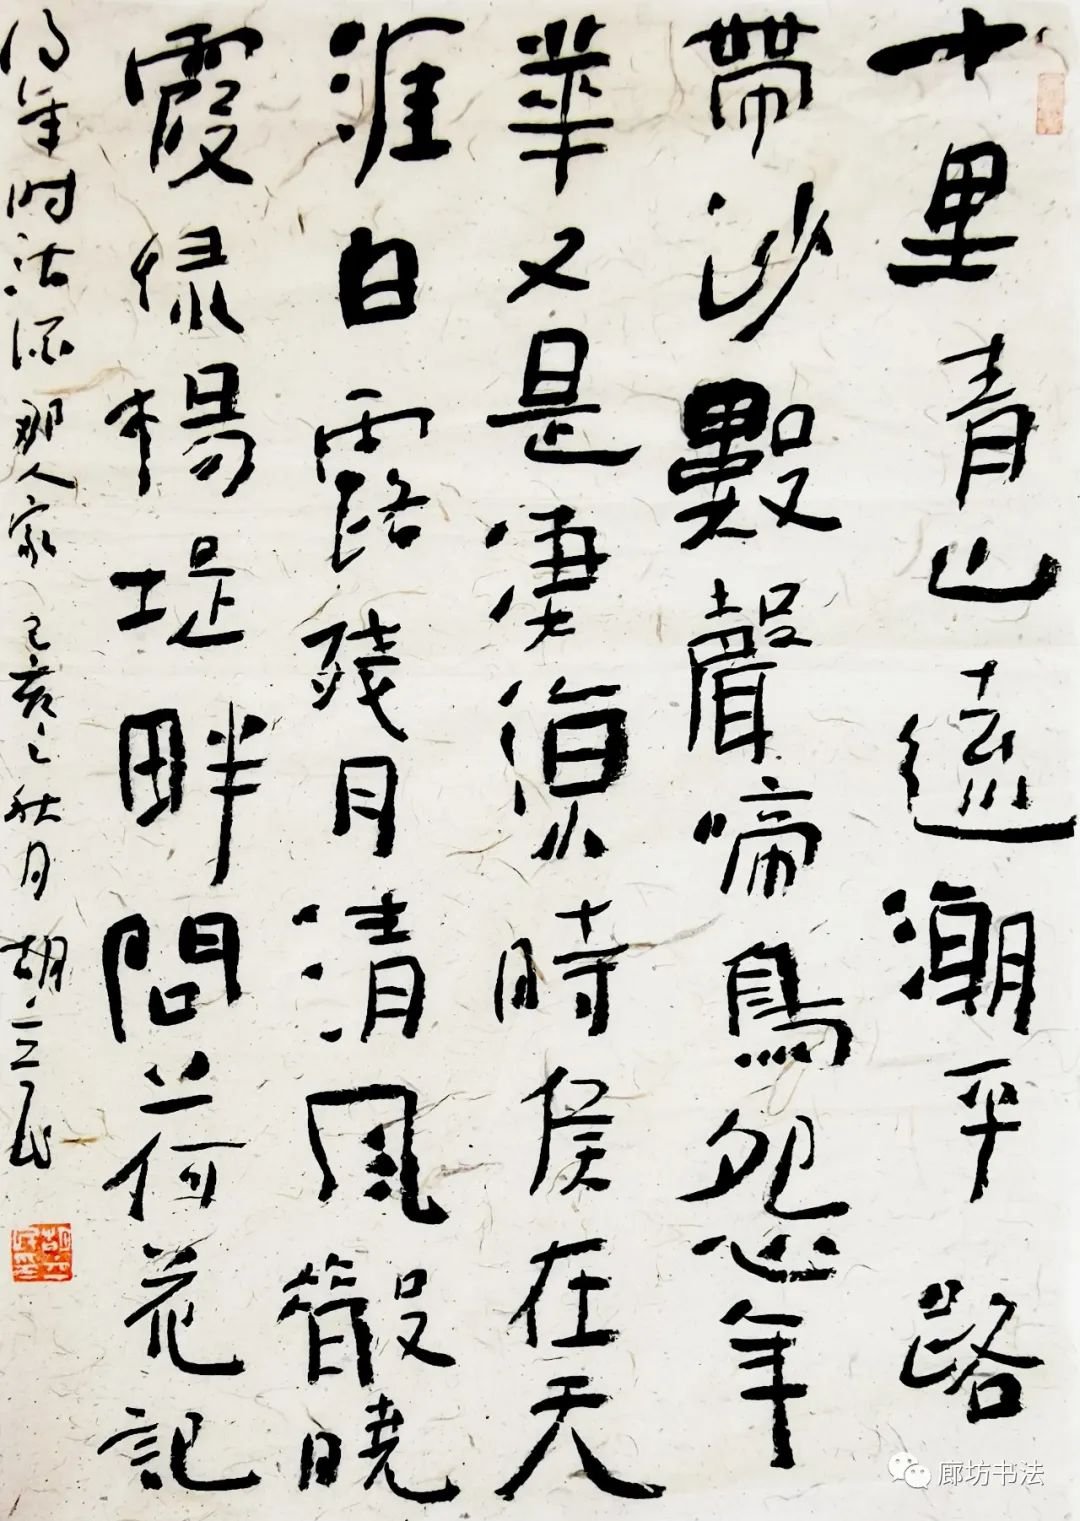 十里青山遠潮平路
帶沙數聲啼鳥怨年
華又是凄涼時候在天
涯白露殘月清風散曉
霞綠楊堤畔問荷花記
得年时沽酒那人家 己亥之秋月 胡立民
廊坊书法